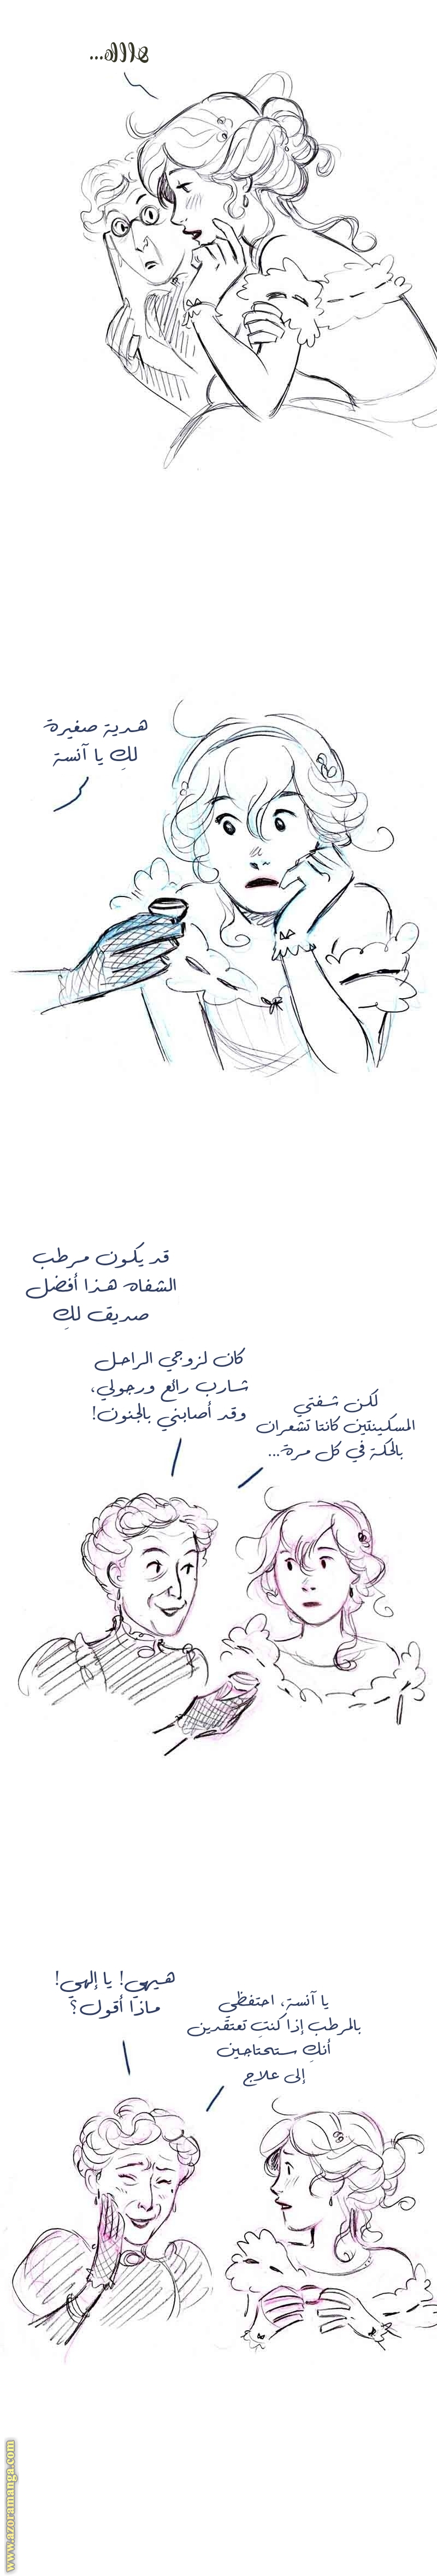 هاااه...
هدية صغيرة
لكِ يا آنسة
قد يكون مرطب
الشفاه هذا أفضل
صديق لكِ
كان لزوجي الراحل
شارب رائع ورجولي،
وقد أصابني بالجنون!
لكن شفتي
المسكينتين كانتا تشعران
بالحكة في كل مرة...
هيهي! يا إلهي!
ماذا أقول؟
يا آنسة، احتفظي
بالمرطب إذا كنتِ تعتقدين
أنكِ ستحتاجين
إلى علاج
www.azoramanga.com